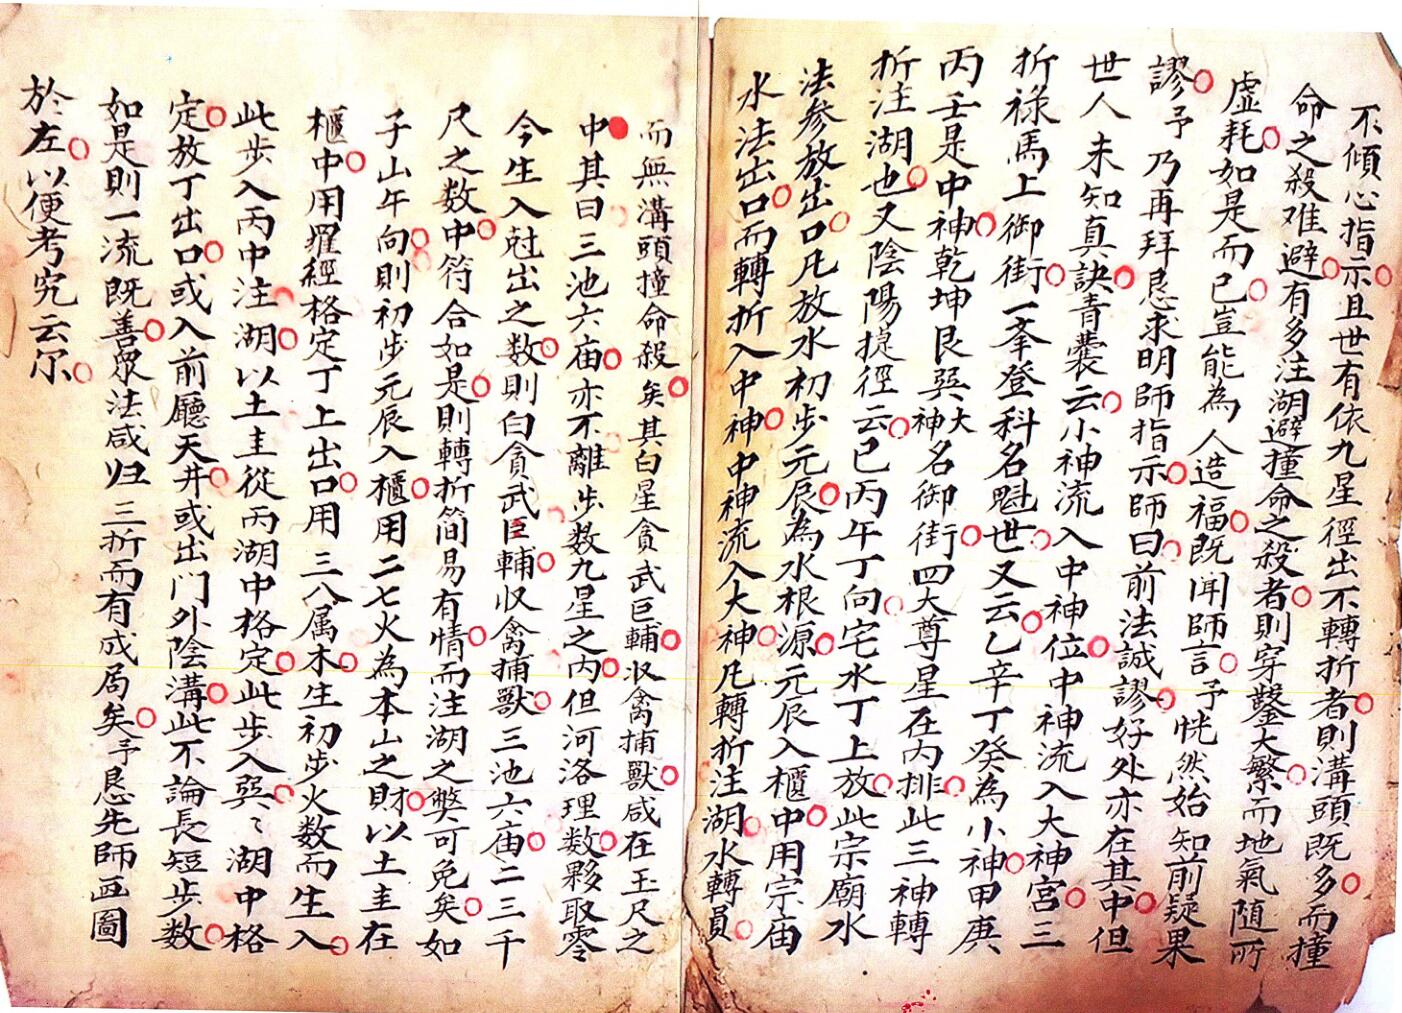 不傾心指示且世有依九星徑出不轉折者則溝頭既多而撞
命之殺难避有多注湖避撞命之殺者則穿鑿大繁而地氣随所
虛耗如是而已豈能為人造福既闻師言予恍然始知前疑果
謬予乃再拜恳求明師指示師曰前法誠謬好处亦在其中但
世人未知真訣青囊云小神流入中神位中神流入大神宮三
折祿馬上御街一举登科名魁世又云乙辛丁癸為小神甲庚
丙壬是中神乾坤艮巽大神名御街四大尊星在内排此三神轉
折注湖也又陰陽捷徑云已丙午丁向宅水丁上放此宗廟水
法参放出口凡放水初步元辰為水根源元辰入櫃中用宗庙
水法出口而轉折入中神中神流入大神凡轉折注湖水轉員
而無溝頭撞命殺矣其白星貪武巨輔収禽捕獸咸在玉尺之
中其曰三池六庙亦不離步数九星之内但河洛理数夥取零
今生入尅出之数則白貪武巨輔収禽捕獸三池六庙二三千
尺之数中符合如是則轉折简易有情而注湖之弊可免矣如
子山午向則初步元辰入櫃用二七火為本山之財以土圭在
櫃中用羅經格定丁上出口用三八属木生初步火数而生入
此步入丙中注湖以土圭從丙湖中格定此步入巽〻湖中格
定放丁出口或入前廳天井或出门外陰溝此不論長短步数
如是則一流既善眾法咸归三折而有成局矣予恳先師画圖
於左以便考究云尔